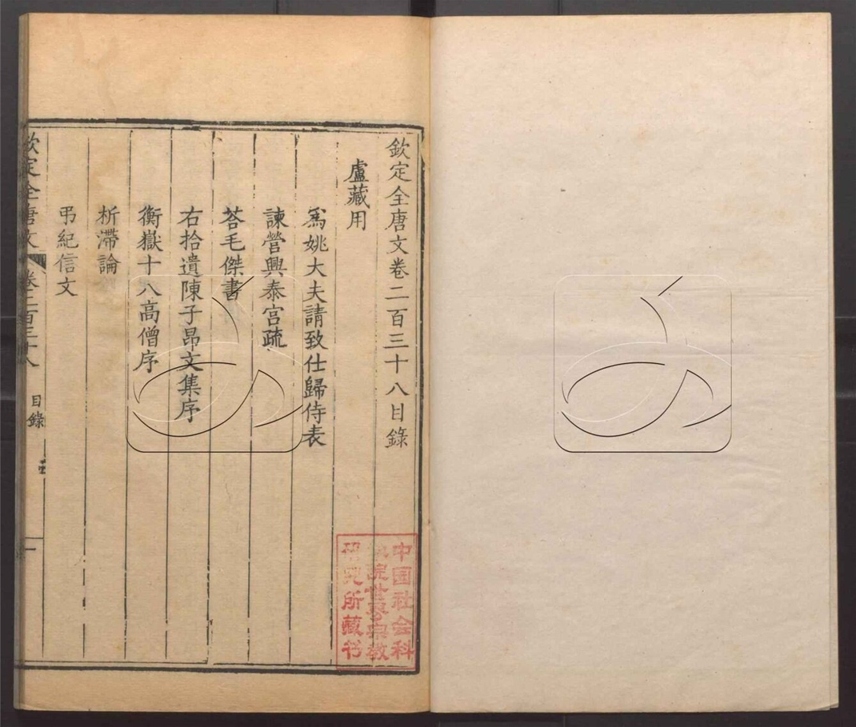 欽定全唐文卷二百三十八目錄
盧藏用
爲姚大夫請致仕歸侍表
諫營興泰宮疏
荅毛傑書
右拾遺陳子昂文集序
衡嶽十八高僧序
析滯論
弔紀信文
欽定全唐文 卷二百三十八 目錄 一
中国社会科
学院世界宗教
研究所藏书